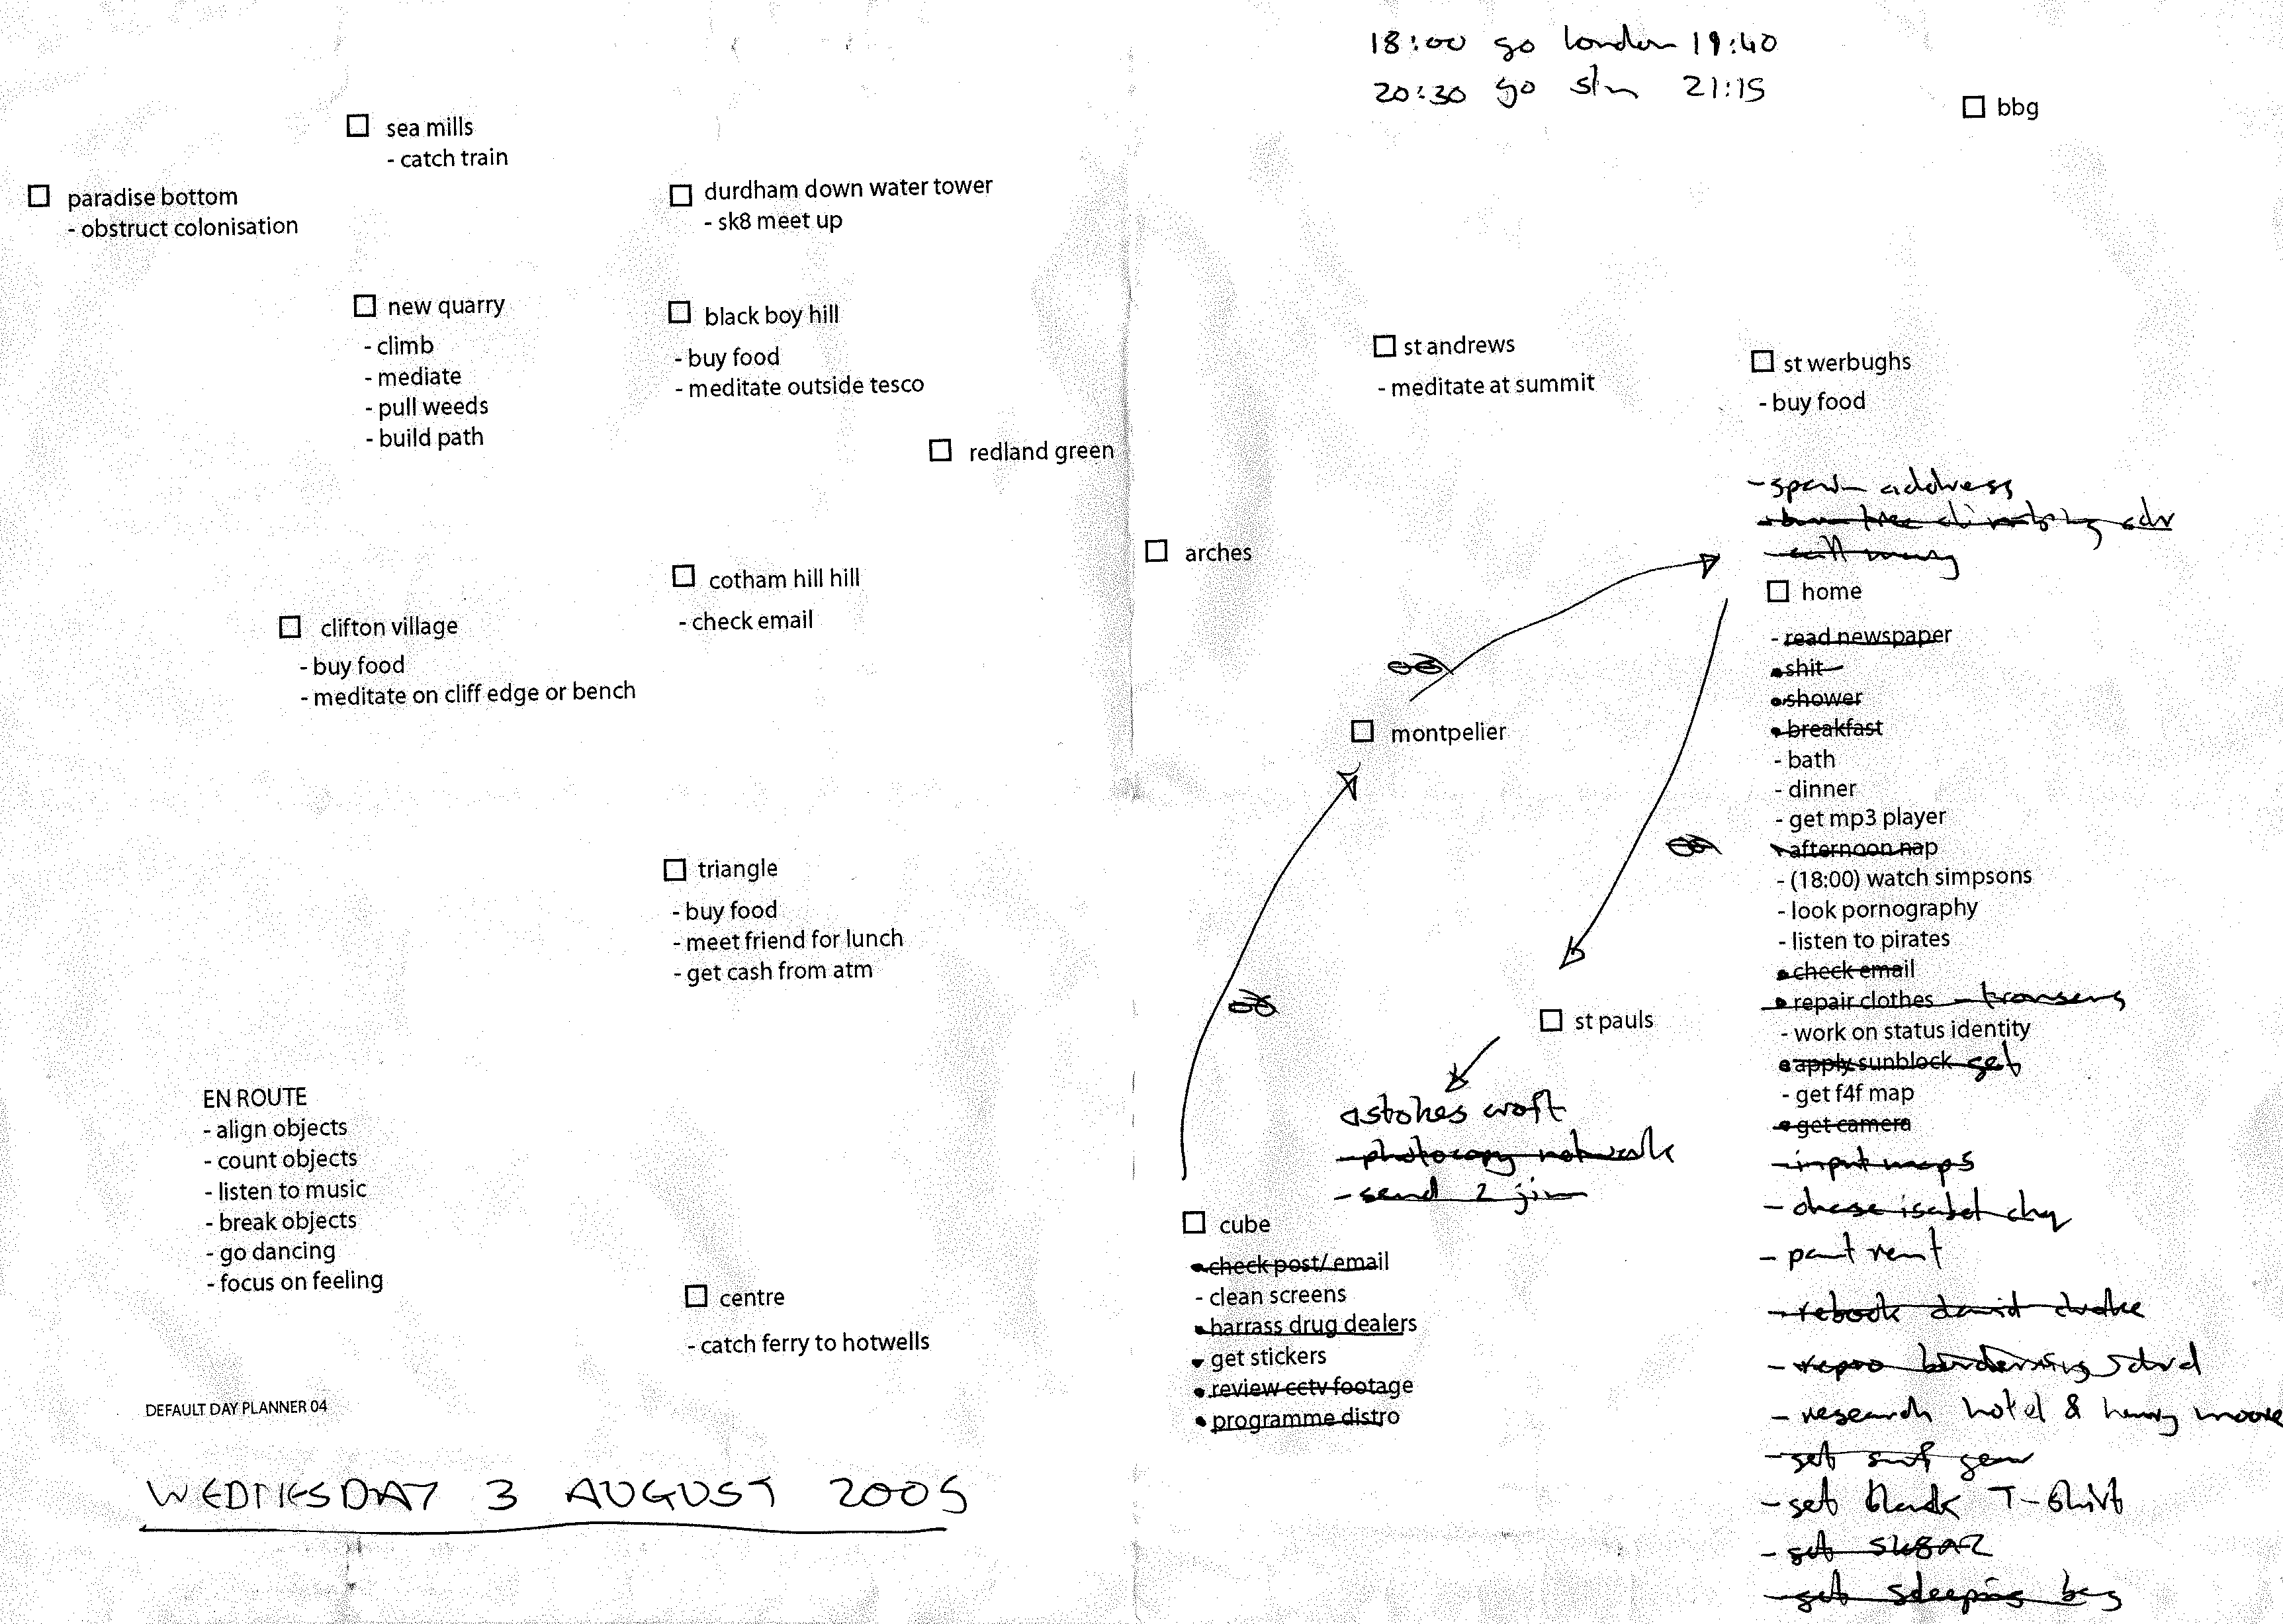 18:00 go london 19:40
20:30 go stn 21:15
bbg
sea mills
- catch train
paradise bottom
- obstruct colonisation
durdham down water tower
- sk8 meet up
new quarry
- climb
- mediate
- pull weeds
- build path
black boy hill
- buy food
- meditate outside tesco
redland green
st andrews
- meditate at summit
st werbughs
- buy food
arches
cotham hill hill
- check email
clifton village
- buy food
- meditate on cliff edge or bench
montpelier
triangle
- buy food
- meet friend for lunch
- get cash from atm
- address
- tree climbing adv
- call
home
- read newspaper
- shit
- shower
- breakfast
- bath
- dinner
- get mp3 player
- afternoon nap
- (18:00) watch simpsons
- look pornography
- listen to pirates
- check email
- repair clothes - trousers
- work on status identity
- apply sunblock get
- get f4f map
- get camera
- input maps
- chase isabel chq
- rent
- rebook david drake
- repro
- research hotel & henry moore
- get surf gear
- get black T-Shirt
- get sk8
- get sleeping bag
st pauls
stokes croft
- photocopy network
- send 2 jim
cube
- check post/ email
- clean screens
- harrass drug dealers
- get stickers
- review cctv footage
- programme distro
EN ROUTE
- align objects
- count objects
- listen to music
- break objects
- go dancing
- focus on feeling
centre
- catch ferry to hotwells
DEFAULT DAY PLANNER 04
WEDNESDAY 3 AUGUST 2005